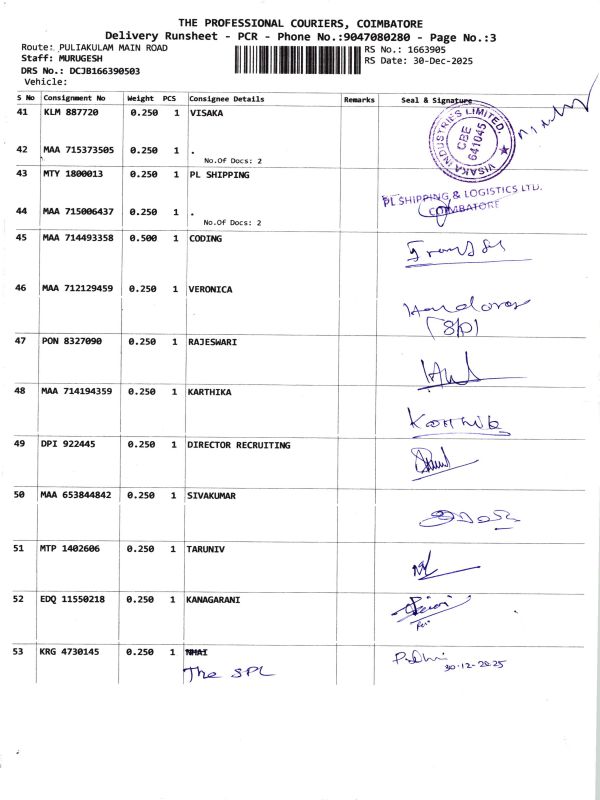 THE PROFESSIONAL COURIERS, COIMBATORE
Delivery Runsheet - PCR - Phone No.:9047080280 - Page No.:3
Route: PULIAKULAM MAIN ROAD
Staff: MURUGESH
DRS No.: DCJB166390503
Vehicle:
RS No.: 1663905
RS Date: 30-Dec-2025
S No Consignment No Weight PCS Consignee Details Remarks Seal & Signature
41 KLM 887720 0.250 1 VISAKA
VISAKA INDUSTRIES LIMITED.
CBE
641045
42 MAA 715373505 0.250 1 .
No.Of Docs: 2
43 MTY 1800013 0.250 1 PL SHIPPING
PL SHIPPING & LOGISTICS LTD.
COIMBATORE
44 MAA 715006437 0.250 1 .
No.Of Docs: 2
45 MAA 714493358 0.500 1 CODING
46 MAA 712129459 0.250 1 VERONICA
47 PON 8327090 0.250 1 RAJESWARI
48 MAA 714194359 0.250 1 KARTHIKA
49 DPI 922445 0.250 1 DIRECTOR RECRUITING
50 MAA 653844842 0.250 1 SIVAKUMAR
51 MTP 1402606 0.250 1 TARUNIV
52 EDQ 11550218 0.250 1 KANAGARANI
53 KRG 4730145 0.250 1 NHAI
The SPL
30-12-2025